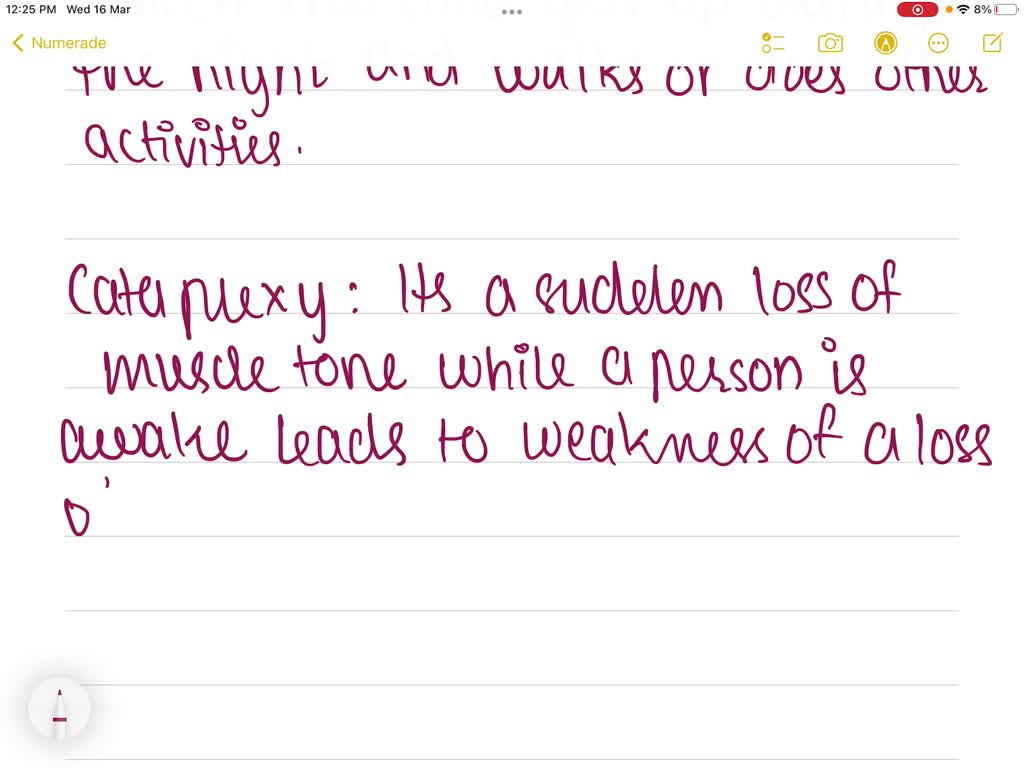 12:25 PM Wed 16 Mar
8%
Numerade
the night and walks or does other
activities.
Cataplexy: Its a sudden loss of
muscle tone while a person is
awake leads to weakness of a loss
o